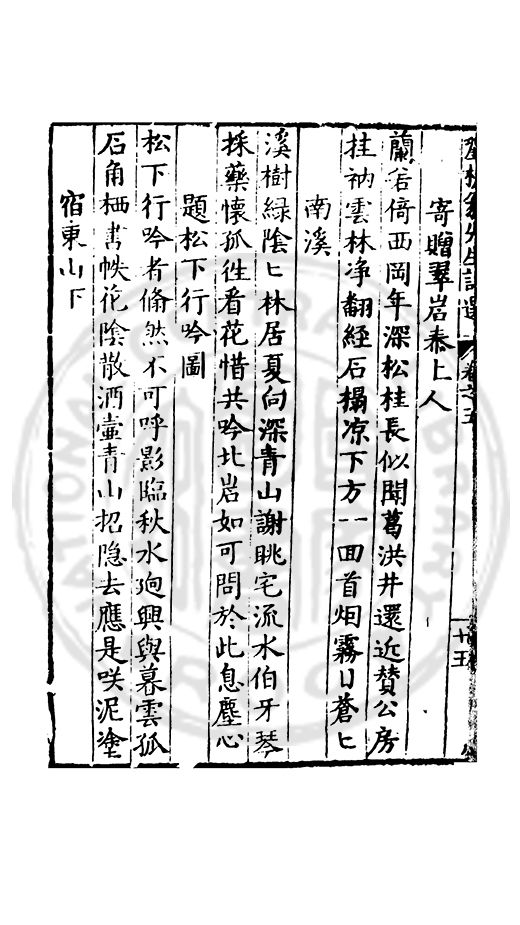 寄贈翠岩泰上人
蘭若倚西岡年深松桂長似聞葛洪井還近賛公房
挂衲雲林净翻經石榻凉下方一回首烟霧日蒼〻
南溪
溪樹綠陰〻林居夏向深青山謝眺宅流水伯牙琴
採藥懷孤往看花惜共吟北岩如可問於此息塵心
題松下行吟圖
松下行吟者翛然不可呼影臨秋水逈興與暮雲孤
石角栖書帙花陰散酒壷青山招隐去應是咲泥塗
宿東山下
卷之五
十五